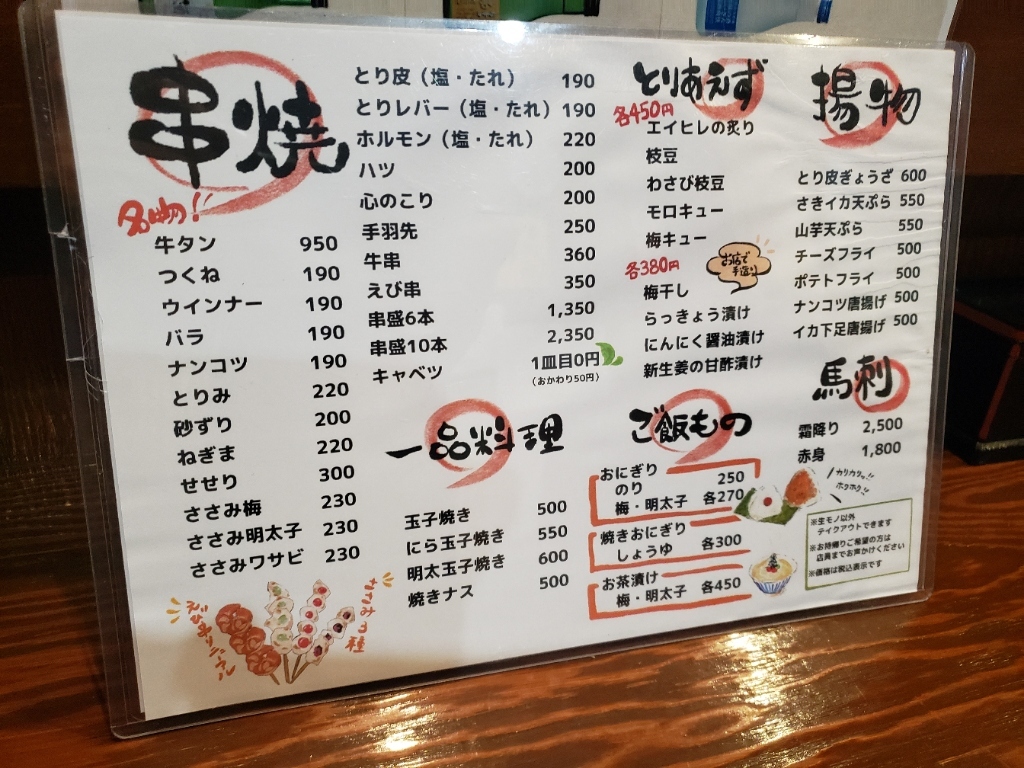 串焼
名物!!
牛タン 950
つくね 190
ウインナー 190
バラ 190
ナンコツ 190
とりみ 220
砂ずり 200
ねぎま 220
せせり 300
ささみ梅 230
ささみ明太子 230
ささみワサビ 230
ささみ3種
とり皮（塩・たれ） 190
とりレバー（塩・たれ） 190
ホルモン（塩・たれ） 220
ハツ 200
心のこり 200
手羽先 250
牛串 360
えび串 350
串盛6本 1,350
串盛10本 2,350
キャベツ 1皿目0円
（おかわり50円）
一品料理
玉子焼き 500
にら玉子焼き 550
明太玉子焼き 600
焼きナス 500
とりあえず
各450円
エイヒレの炙り
枝豆
わさび枝豆
モロキュー
梅キュー
お店で
手造り
各380円
梅干し
らっきょう漬け
にんにく醤油漬け
新生姜の甘酢漬け
ご飯もの
おにぎり
のり 250
梅・明太子 各270
焼きおにぎり
しょうゆ 各300
お茶漬け
梅・明太子 各450
揚物
とり皮ぎょうざ 600
さきイカ天ぷら 550
山芋天ぷら 550
チーズフライ 500
ポテトフライ 500
ナンコツ唐揚げ 500
イカ下足唐揚げ 500
馬刺
霜降り 2,500
赤身 1,800
カリカリッ!!
ホクホク!!
※生モノ以外
テイクアウトできます
※お持帰りご希望の方は
店員までお声かけください
※価格は税込表示です